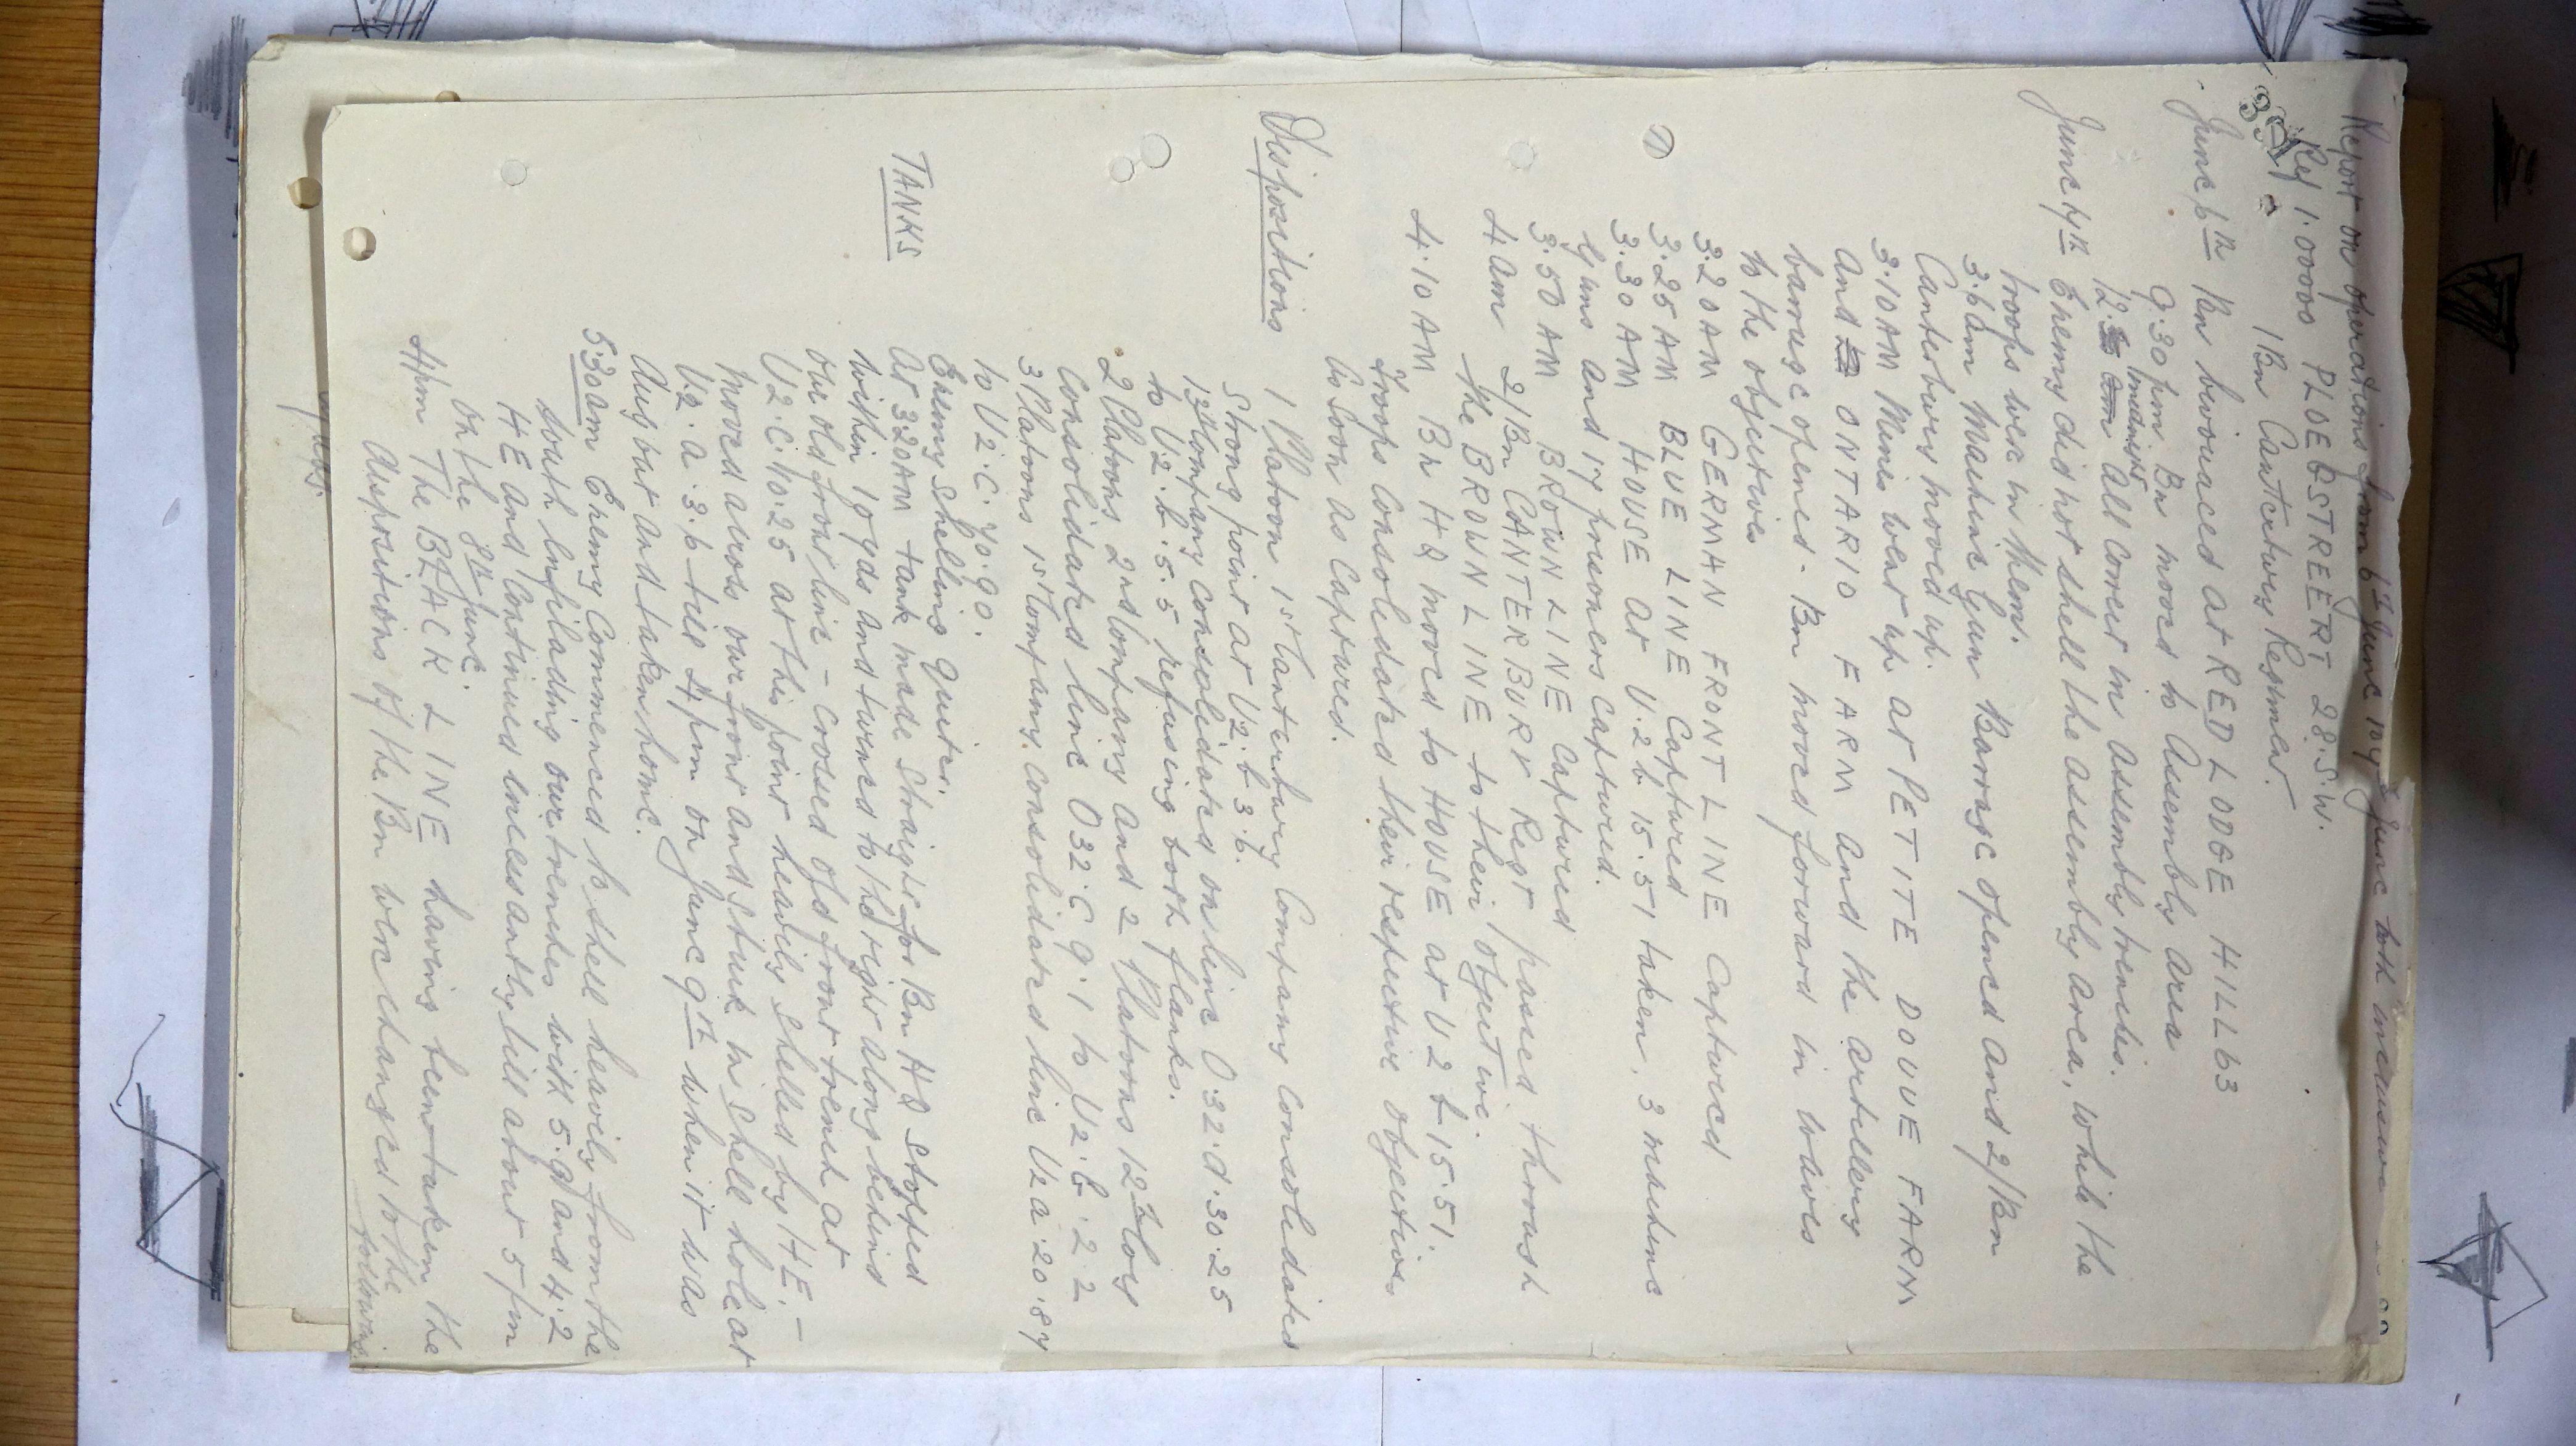 Report on operations from 6th June to 9th June both inclusive
Ref 1.0000 PLOEGSTREERT 28.S.W.
1 Bn Canterbury Regiment.
June 6th Bn bivouaced at RED LODGE HILL 63
9.30 pm Bn moved to Assembly area
12 midnight All cover in Assembly trenches.
June 7th Enemy did not shell the assembly area, while the
troops were in them.
3.6 am Machine Gun Barrage opened and 2/Bn
Canterbury moved up.
3.10 AM Mines went up at PETITE DOUVE FARM
and ONTARIO FARM and the artillery
barrage opened. Bn moved forward in waves
to the objectives
3.20 AM GERMAN FRONT LINE Captured
3.25 AM BLUE LINE Captured
3.30 AM HOUSE at U.2 b 15.51 taken, 3 machine
guns and 17 prisoners captured.
3.50 AM BROWN LINE Captured
4 am 2/Bn CANTERBURY Regt passed through
the BROWN LINE to their objective.
4.10 AM Bn HQ moved to HOUSE at U2 b 15.51.
Troops consolidated their respective objectives
as soon as captured.
Dispositions 1 Platoon 1st Canterbury Company consolidated
Strong point at U2.b 3.6.
13th Company consolidated on line O.32.d.30.25
to U2.b.5.5 refusing both flanks.
2 Platoons 2nd Company and 2 Platoons 12th Coy
consolidated line O32.c 9.1 to U2.b.2.2
3 Platoons 1st Company consolidated line U2 a.20.87
to U2.c.70.90.
Enemy shelling quiet.
TANKS At 3.20 AM tank made straight for Bn HQ stopped
within 10 yds and turned to the right along behind
our old front line - crossed old front trench at
U2.c.10.25 at this point heavily shelled by HE. -
moved across our front and stuck in shell hole at
U2.a.3.6 till 4 pm on June 9th when it was
dug out and taken home.
5.30 am Enemy commenced to shell heavily from the
south enfilading our trenches with 5.9 and 4.2
HE and continued incessantly till about 5 pm
on the 8th June.
4 pm The BLACK LINE having been taken the
dispositions of the Bn were changed to the
following.